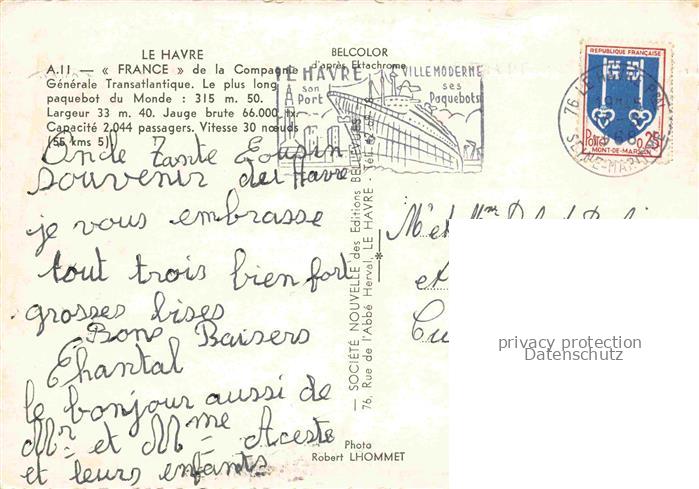 LE HAVRE
A.11 — « FRANCE » de la Compagnie
Générale Transatlantique. Le plus long
paquebot du Monde : 315 m. 50.
Largeur 33 m. 40. Jauge brute 66.000 tx.
Capacité 2.044 passagers. Vitesse 30 nœuds
(55 kms 5)
BELCOLOR
d'après Ektachrome
LE HAVRE
son
Port
VILLE MODERNE
ses
Paquebots
REPUBLIQUE FRANÇAISE
Postes 0,25
MONT-DE-MARSAN
76 LE HAVRE
SEINE-MARITIME
Oncle Tante Cousin
Souvenir du Havre
je vous embrasse
tout trois bien fort
grosses bises
Bons Baisers
Chantal
le bonjour aussi de
Mr et Mme Aceste
et leurs enfants
— SOCIÉTÉ NOUVELLE des Editions BELLEVUES
76, Rue de l'Abbé Herval, LE HAVRE - Tél.
M et Mm
et
Photo
Robert LHOMMET
privacy protection
Datenschutz